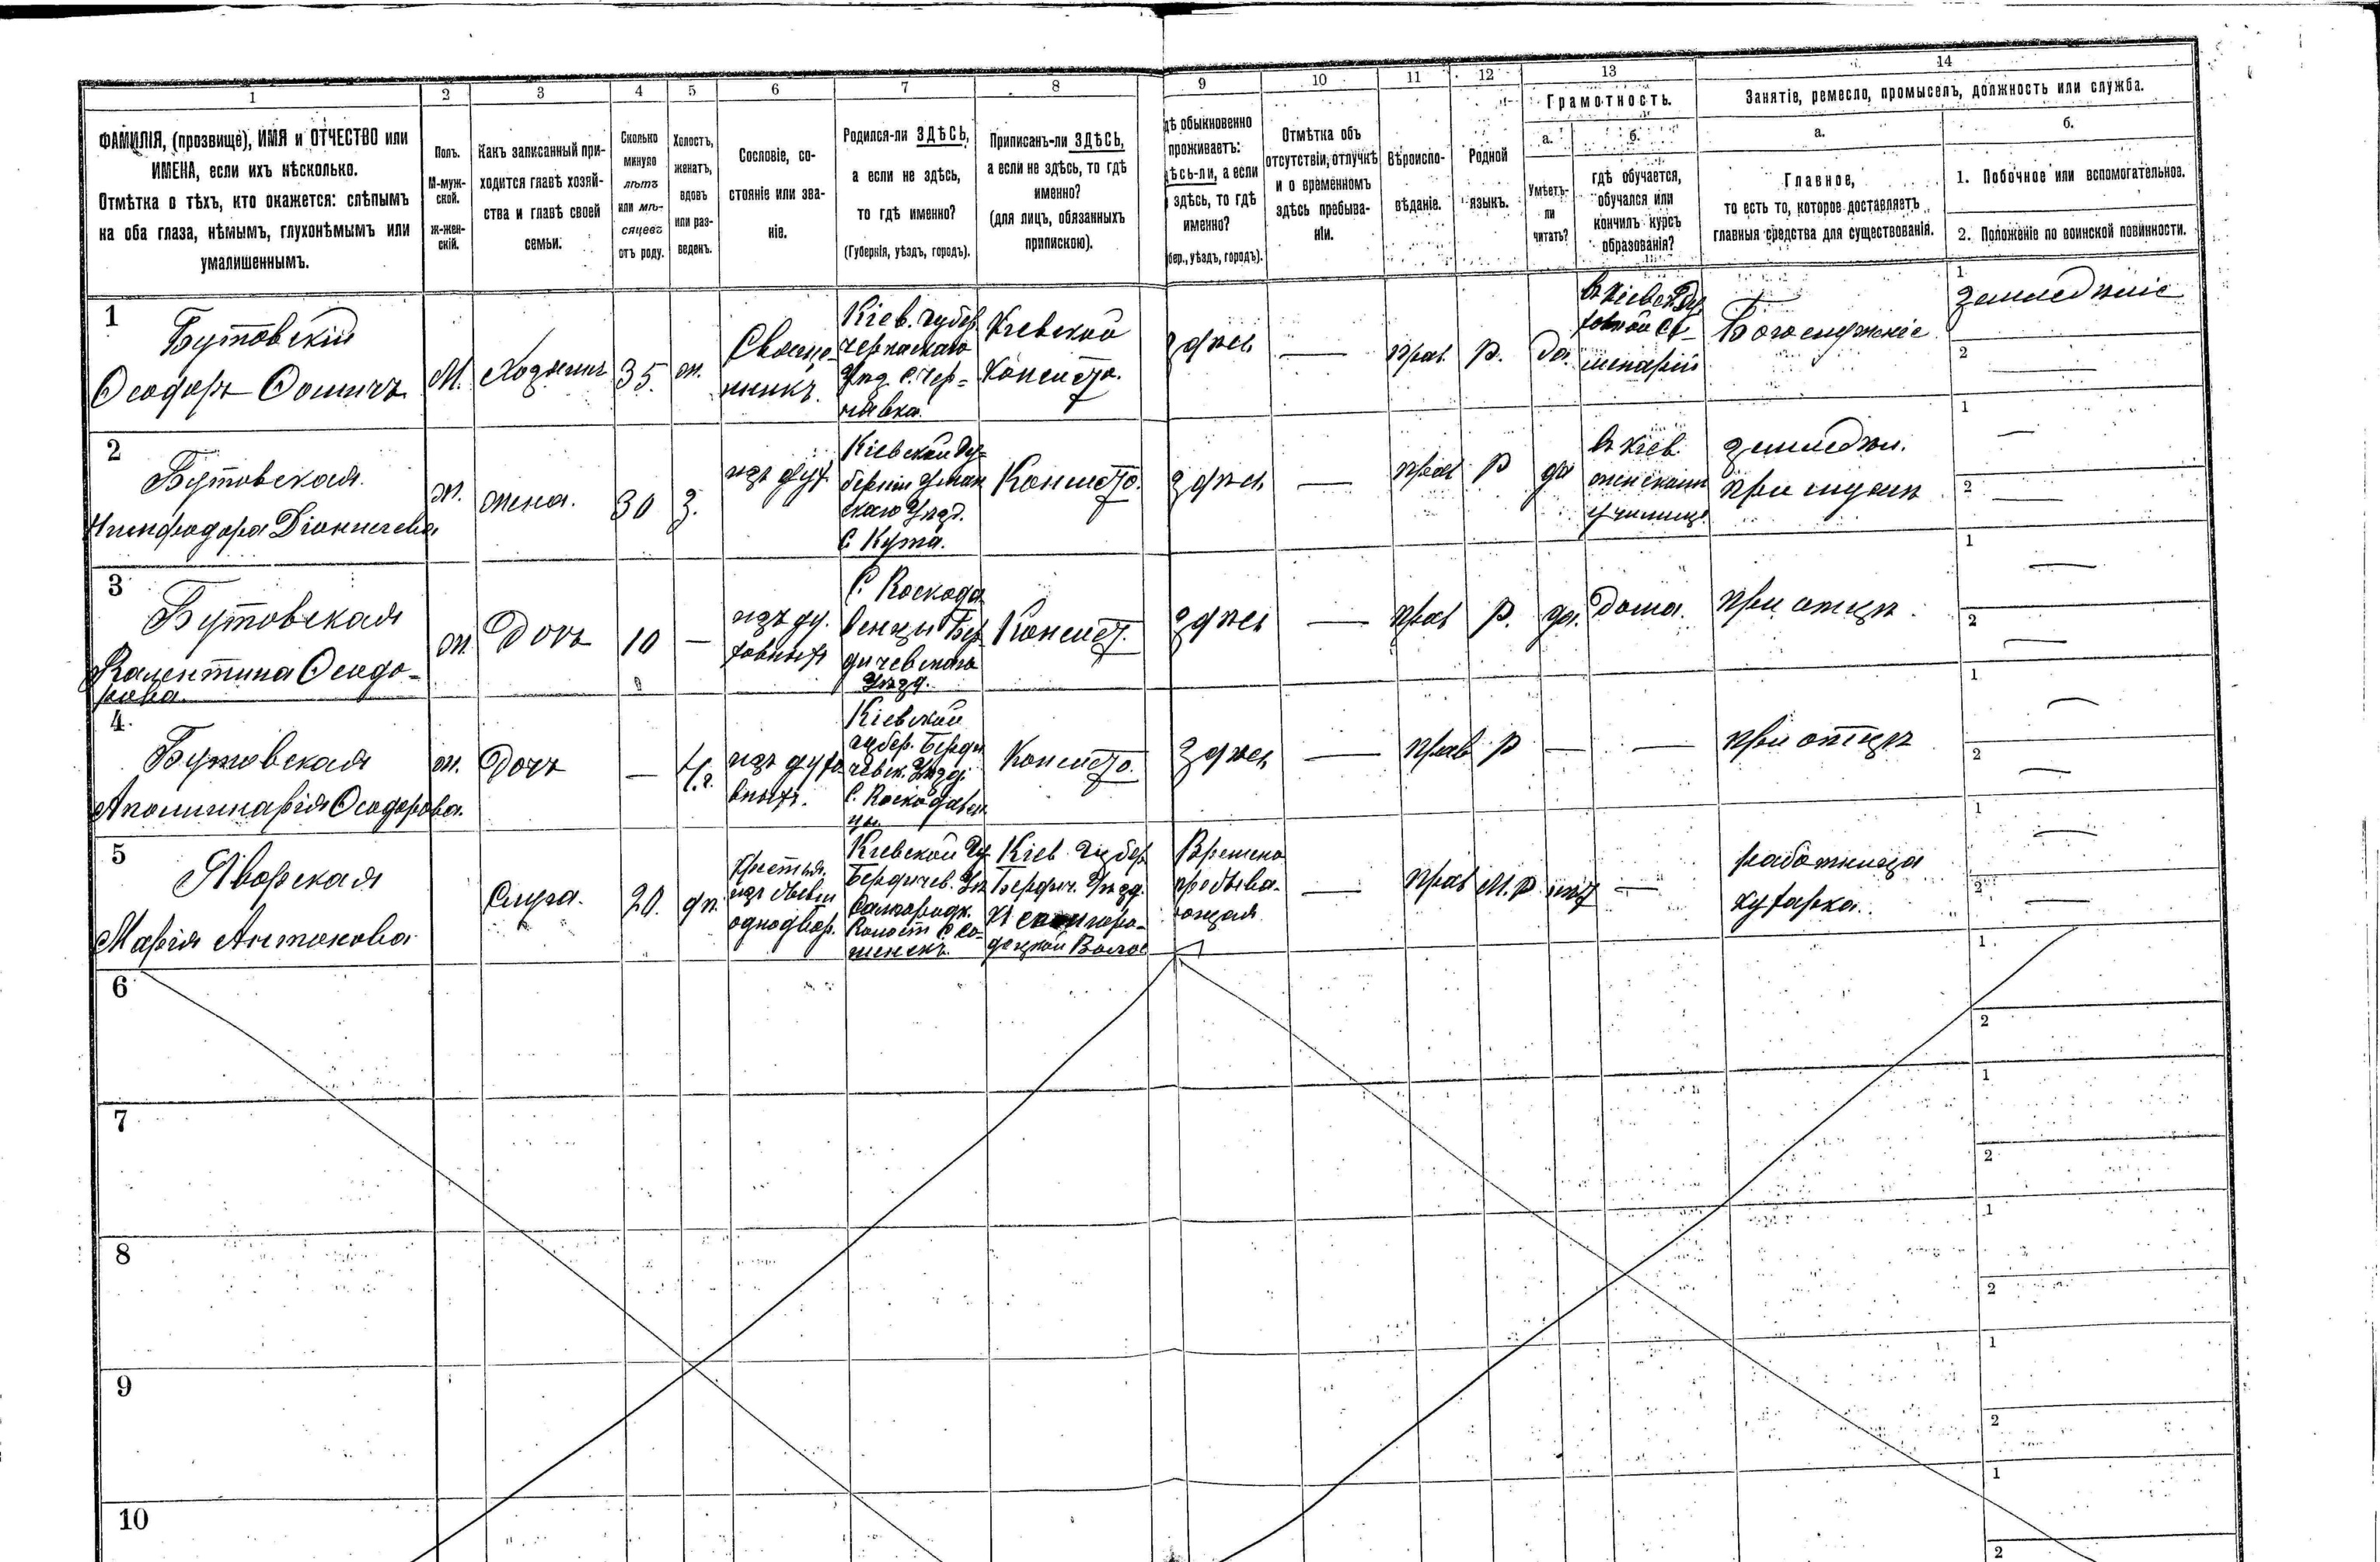 1 2 3 4 5 6 7 8 9 10 11 12 13 14
ФАМИЛІЯ, (прозвище), ИМЯ и ОТЧЕСТВО или
ИМЕНА, если ихъ нѣсколько.
Отмѣтка о тѣхъ, кто окажется: слѣпымъ
на оба глаза, нѣмымъ, глухонѣмымъ или
умалишеннымъ.
Полъ.
М-муж-
ской.
ж-жен-
скій.
Какъ записанный при-
ходится главѣ хозяй-
ства и главѣ своей
семьи.
Сколько
минуло
лѣтъ
или мѣ-
сяцевъ
отъ роду.
Холостъ,
женатъ,
вдовъ
или раз-
веденъ.
Сословіе, со-
стояніе или зва-
ніе.
Родился-ли ЗДѢСЬ,
а если не здѣсь,
то гдѣ именно?
(Губернія, уѣздъ, городъ).
Приписанъ-ли ЗДѢСЬ,
а если не здѣсь, то гдѣ
именно?
(для лицъ, обязанныхъ
припискою).
дѣ обыкновенно
проживаетъ:
ѣсь-ли, а если
здѣсь, то гдѣ
именно?
бер., уѣздъ, городъ).
Отмѣтка объ
отсутствіи, отлучкѣ
и о временномъ
здѣсь пребыва-
ніи.
Вѣроиспо-
вѣданіе.
Родной
языкъ.
Грамотность.
а.
Умѣетъ-
ли
читать?
б.
гдѣ обучается,
обучался или
кончилъ курсъ
образованія?
Занятіе, ремесло, промыселъ, должность или служба.
а.
Главное,
то есть то, которое доставляетъ
главныя средства для существованія.
б.
1. Побочное или вспомогательное.
2. Положеніе по воинской повинности.
1
Бутовскій
Ѳеодоръ Ѳомичъ
М.
Хозяинъ
35.
ж.
Свяще-
нникъ.
Кіев. губер
черкаскаго
Уѣзд. с. Чер-
нявка.
Кіевской
Консисто.
здѣсь
—
прав.
р.
да.
в Кіевск. Ду
ховной Се-
минаріи
Богослуженіе
1
земледѣліе
2
—
2
Бутовская
Нимфодора Діонисіева
ж.
жена.
30
З.
изъ дух.
Кіевской Гу-
берніи Уман
скаго Уѣзд.
с. Кута.
Консисто.
здѣсь
—
прав
р
да
в Кіев.
женском
училищ.
земледѣл.
при мужѣ
1
—
2
—
3
Бутовская
Валентина Ѳеодо-
рова.
ж.
Дочь
10
—
изъ ду-
ховныхъ
С. Роскода
венцы Бер
дичевскаго
Уѣзд.
Консист.
здѣсь
—
прав
р.
да.
дома.
при отцѣ.
1
—
2
—
4
Бутовская
Аполинарія Ѳеодорова.
ж.
Дочь
—
4 г.
изъ духо
вныхъ.
Кіевской
губер. Берди
чевск. Уѣзд.
с. Роскодавен
цы
Консисто.
здѣсь
—
прав
р
—
—
при отцѣ
1
—
2
—
5
Яворская
Марія Антонова
Слуга.
20.
дѣ.
Крестья.
изъ бывш
однодвор.
Кіевской Гу
Бердичев. Уѣ
Самгородк.
Волост
Кіев. губер
Бердич. Уѣзд.
Волос
Времено
пребыва-
ющая
—
прав
М. р
нѣт
—
работница
кухарка.
1
—
2
—
6
1
2
7
1
2
8
1
2
9
1
2
10
1
2